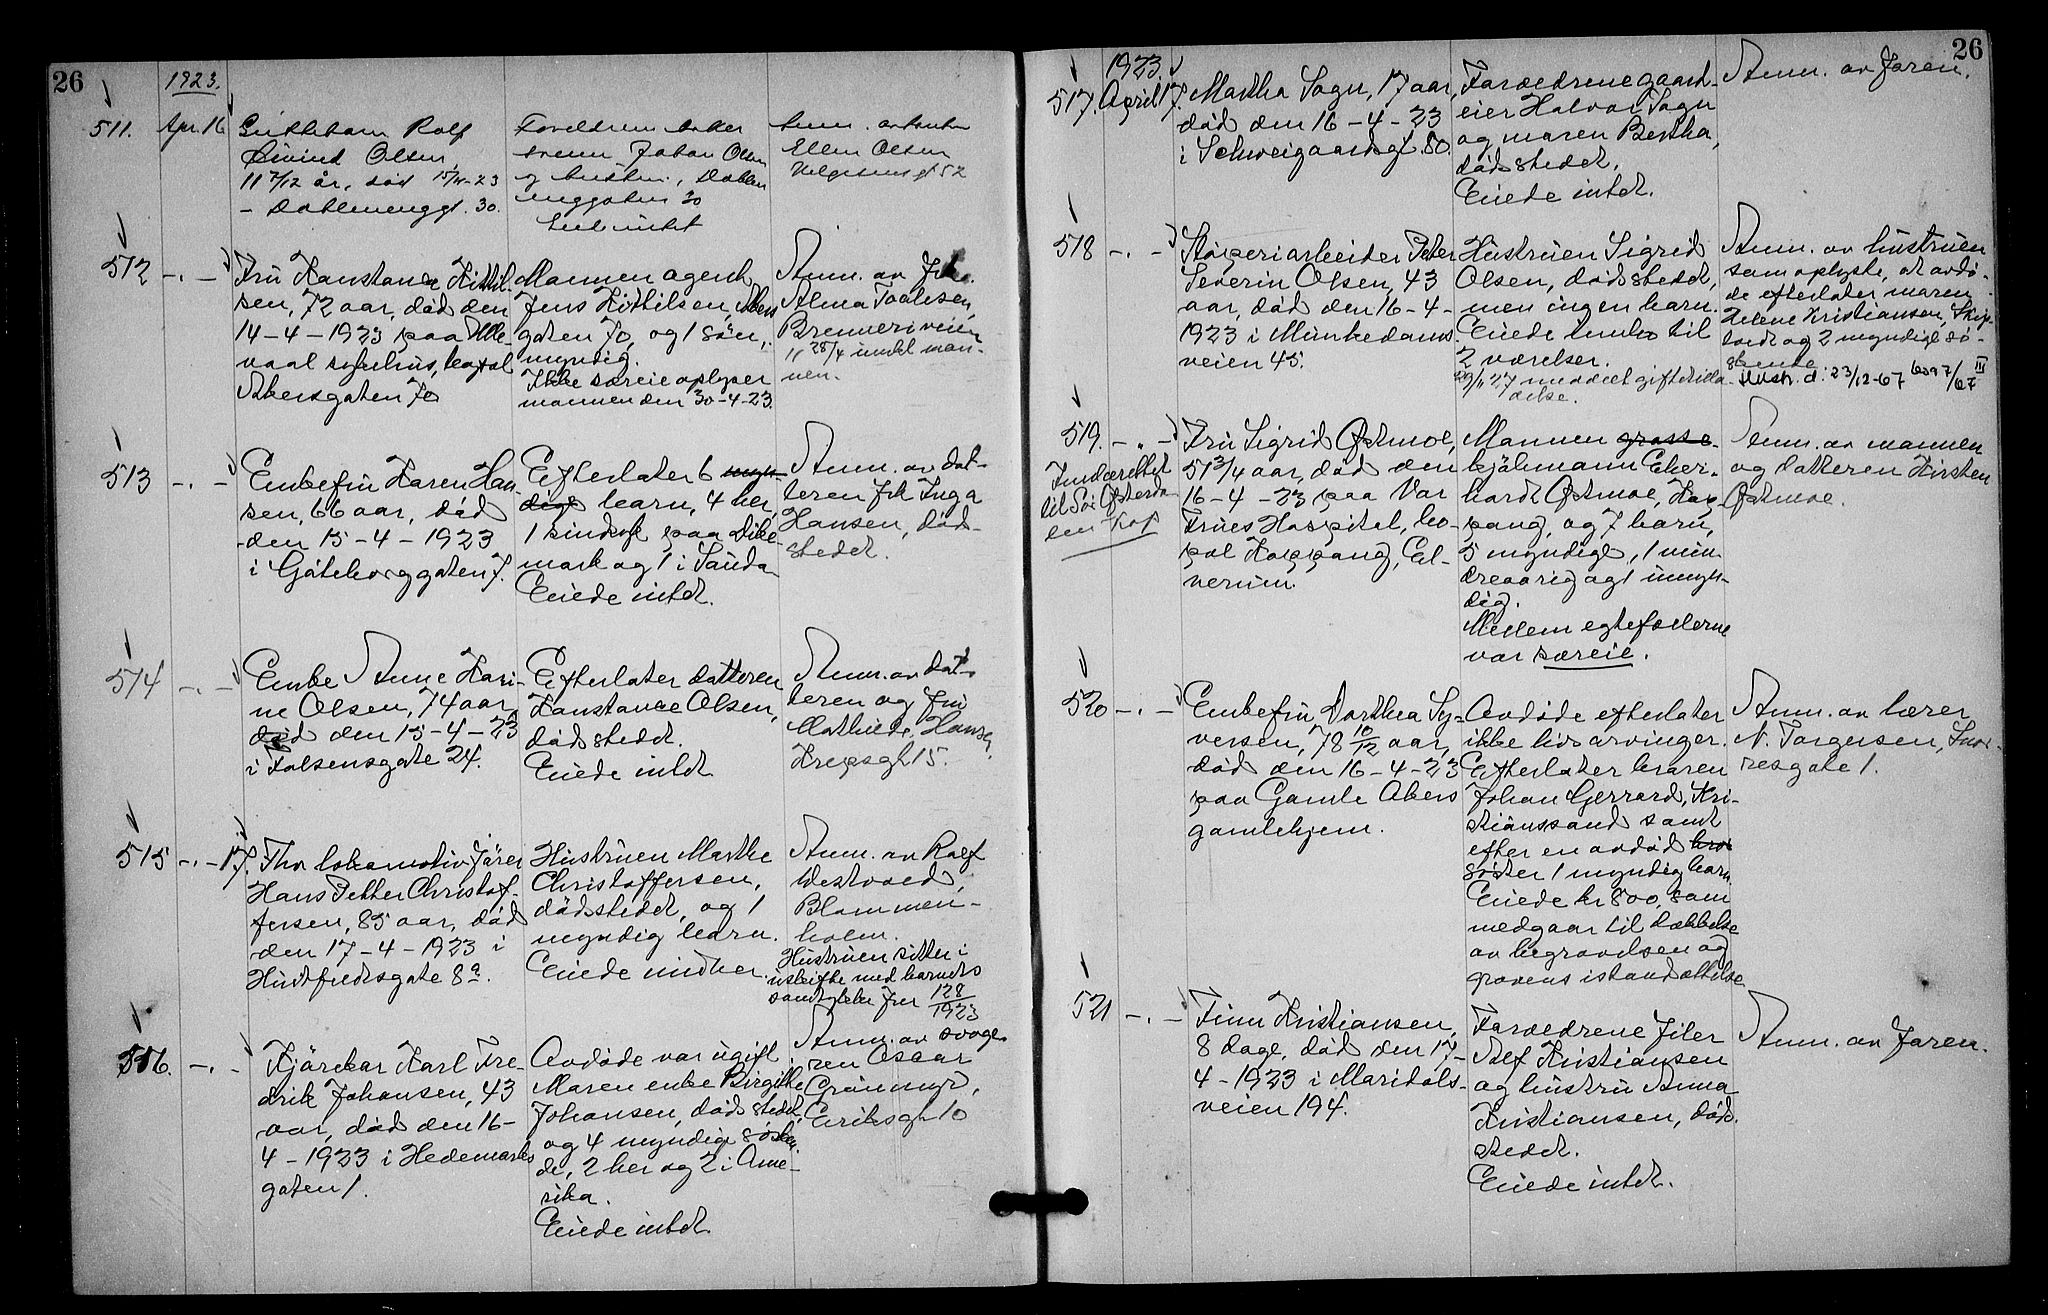 26
1923.
511. Apr. 16
Guttebarn Rolf
Øivind Olsen,
11 7/12 år, död 15/4-23
- Dælenenggt. 30.
Foreldrene
Johan Olsen
og hustru, Dælen
enggaten 30
Eied intet
Anm. av tante
Ellen Olsen
Helgesensgt 52
512 -.-
Fru Konstance Kittil-
sen, 72 aar, död den
14-4-1923 paa Ulle-
vaal sykehus, bopæl
Akersgaten 70
Mannen agent
Jens Kittilsen, Akers
gaten 70, og 1 sön,
myndig.
Ikke særeie oplyser
mannen den 30-4-23.
Anm. av Frk.
Alma Paulsen,
Brenneriveien
11 28/4 innkl man-
nen.
513 -.-
Enkefru Karen Han-
sen, 66 aar, död
den 15-4-1923
i Göteborggaten 7.
Efterlater 6 myn-
dige barn, 4 her,
1 sindsyk paa Dike-
mark og 1 i Sauda
Eiede intet.
Anm. av dat-
teren frk Inga
Hansen, död-
stedet.
514 -.-
Enke Anne Kari-
ne Olsen, 74 aar,
död den 15-4-23
i Falsensgate 24.
Efterlater datteren
Konstance Olsen,
dödsstedet.
Eiede intet
Anm. av dat-
teren og fru
Mathilde Hansen,
Krepsgt 15.
515 -.- 17.
Fhv lokomotivförer
Hans Petter Christof-
fersen, 85 aar, död
den 17-4-1923 i
Huitfeldtsgate 8a.
Hustruen Marthe
Christoffersen,
dödsstedet, og 1
myndig barn.
Eiede indbo.
Anm. av Rolf
Westvold,
Blommen-
holm.
Hustruen sitter i
uskifte med barnets
samtykke jnr 128/1923
516. -.-
Kjörekar Karl Fre-
drik Johansen, 43
aar, död den 16-
4-1923 i Hedemarks
gaten 1.
Avdöde var ugift
Moren enke Birgitte
Johansen, dödsstedet,
og 4 myndige sösken
de, 2 her og 2 i Ame-
rika.
Eiede intet.
Anm. av svoge-
ren Oscar
Grönmyr,
Eriksgt 10
26
1923.
517. April 17.
Martha Sogn, 17 aar,
död den 16-4-23
i Schweigaardsgt. 50.
Forældrene gaard-
eier Halvor Sogn
og maren Bertha,
dödsstedet.
Eiede intet.
Anm. av faren.
518 -.-
Støperiarbeider Peter
Severin Olsen, 43
aar, död den 16-4-
1923 i Munkedams
veien 45.
Hustruen Sigrid
Olsen, dödsstedet,
men ingen barn.
Eiede innbo til
2 værelser.
29/11 27 meddelt giftetilla-
delse.
Anm. av hustruen
som oplyste, at avdö-
de efterlater moren
Helene Kristiansen,
og 2 myndige sö-
skende
Hustr. d. 23/12-67 6097/67 III
519. -.-
Innberettet
til Sör Østerda
len
Fru Sigrid Østmoe,
51 3/4 aar, död den
16-4-23 paa Vor
Frues Hospital, bo-
pæl Koppang, El-
verum.
Mannen grosse-
kjöbmann Eber-
hardt Østmoe, Kop-
pang, og 7 barn,
5 myndige, 1 min
dreaarig og 1 umyn-
dig.
Mellem egtefællerne
var særeie.
Anm. av mannen
og datteren Kirsten
Østmoe.
520 -.-
Enkefru Dorthea Sy-
versen, 78 10/12 aar,
död den 16-4-23
paa Gamle Akers
gamlehjem.
Avdöde efterlater
ikke livsarvinger.
Efterlater broren
Johan Gerrard, Kri-
stianssand samt
efter en avdöd bro
söster 1 myndig barn.
Eiede kr 800, som
medgaar til dækkelse
av begravelsen og
gravens istandsættelse
Anm. av lærer
N. Torgersen, Snor-
resgate 1.
521 -.-
Finn Kristiansen,
8 dage, död den 17-
4-1923 i Maridals-
veien 194.
Forældrene filer
Alf Kristiansen
og hustru Anna
Kristiansen, död-
stedet.
Eiede intet.
Anm. av faren.